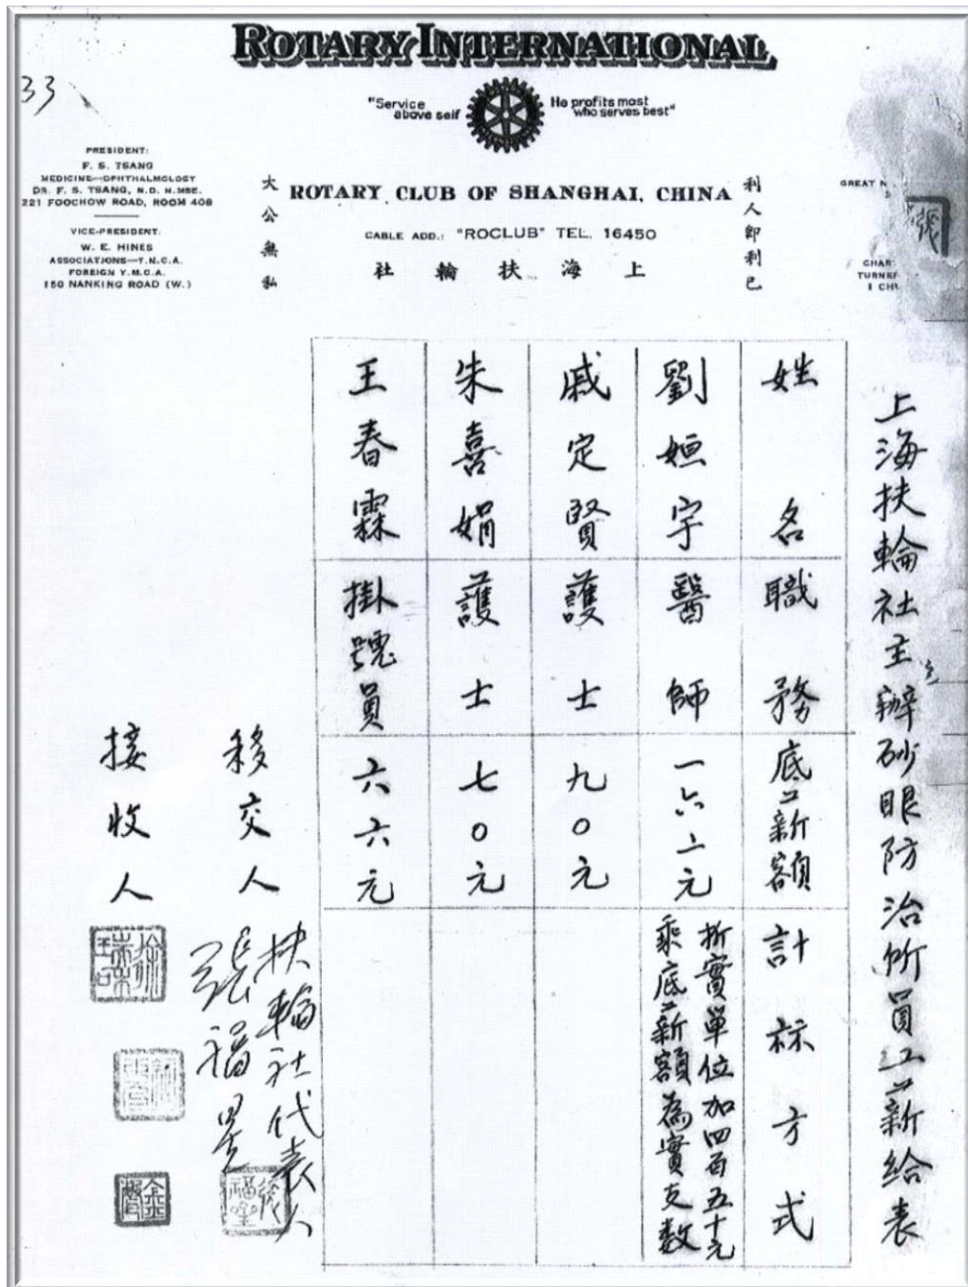 ROTARY INTERNATIONAL
33
"Service above self
He profits most who serves best"
PRESIDENT:
F. S. TSANG
MEDICINE—OPHTHALMOLOGY
DR. F. S. TSANG, N.D. H.MBE.
221 FOOCHOW ROAD, ROOM 408
VICE-PRESIDENT:
W. E. HINES
ASSOCIATIONS—Y.M.C.A.
FOREIGN Y.M.C.A.
150 NANKING ROAD (W.)
大公無私
ROTARY CLUB OF SHANGHAI, CHINA
利人即利己
CABLE ADD.: "ROCLUB" TEL. 16450
社輪扶海上
GREAT N
CHAR
TURNER
1 CHU
張
上海扶輪社主辦砂眼防治所員工薪給表
姓名
職務
底薪額
計祘方式
劉姮宇
醫師
一六二元
折實單位加四百五十元
乘底薪額為實支数
戚定賢
護士
九〇元
朱喜娟
護士
七〇元
王春霖
掛號員
六六元
移交人
扶輪社代表人
張福星
張福星
接收人